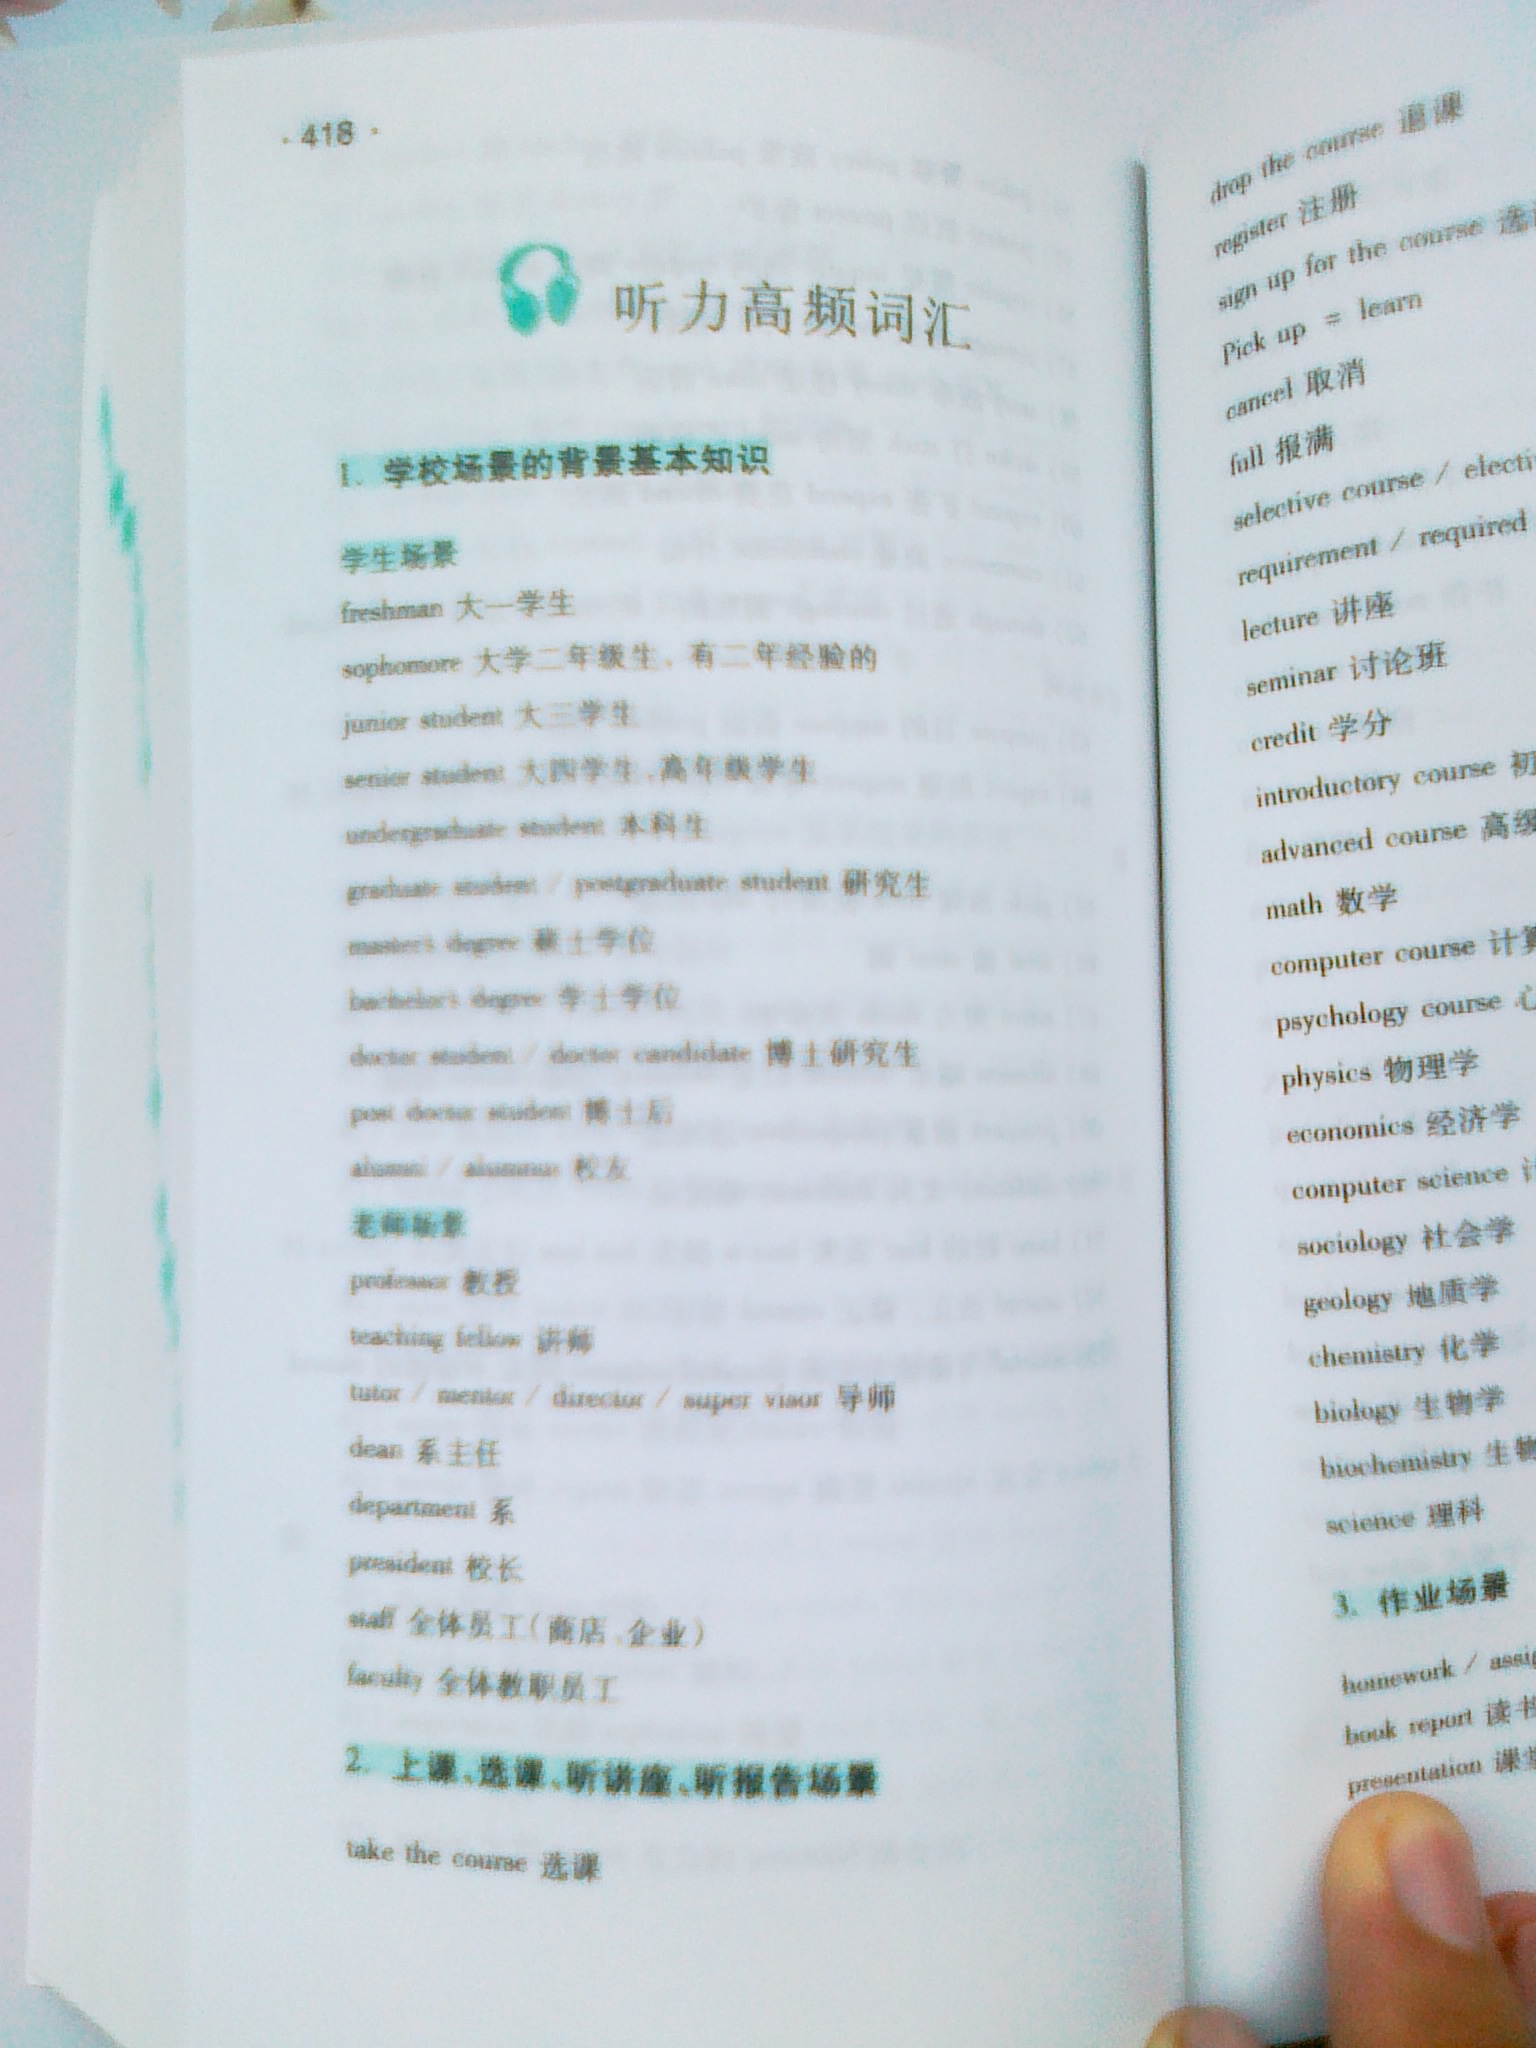 · 418 ·
听力高频词汇
1. 学校场景的背景基本知识
学生场景
freshman 大一学生
sophomore 大学二年级生，有二年经验的
junior student 大三学生
senior student 大四学生、高年级学生
undergraduate student 本科生
graduate student / postgraduate student 研究生
master's degree 硕士学位
bachelor's degree 学士学位
doctor student / doctor candidate 博士研究生
post doctor student 博士后
alumni / alumnus 校友
老师场景
professor 教授
teaching fellow 讲师
tutor / mentor / director / super visor 导师
dean 系主任
department 系
president 校长
staff 全体员工（商店、企业）
faculty 全体教职员工
2. 上课、选课、听讲座、听报告场景
take the course 选课
drop the course 退课
register 注册
sign up for the course 选
Pick up = learn
cancel 取消
full 报满
selective course /
requirement / required
lecture 讲座
seminar 讨论班
credit 学分
introductory course 初
advanced course 高级
math 数学
computer course 计算
psychology course 心
physics 物理学
economics 经济学
computer science
sociology 社会学
geology 地质学
chemistry 化学
biology 生物学
biochemistry 生物
science 理科
3. 作业场景
homework /
book report 读书
presentation 课堂